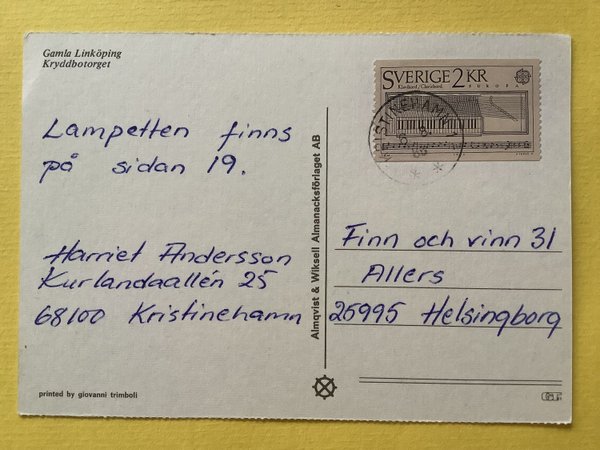 Gamla Linköping
Kryddbotorget
SVERIGE 2 KR
Klavikord / Clavichord.
EUROPA
KRISTINEHAMN 1
Lampetten finns
på sidan 19.
Harriet Andersson
Kurlandaallén 25
68100 Kristinehamn
Almqvist & Wiksell Almanacksförlaget AB
Finn och vinn 31
Allers
25995 Helsingborg
printed by giovanni trimboli